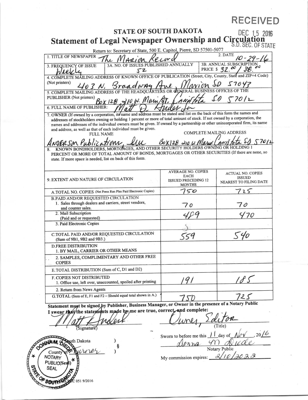 RECEIVED
DEC 15 2016
S.D. SEC. OF STATE
STATE OF SOUTH DAKOTA
Statement of Legal Newspaper Ownership and Circulation
Return to: Secretary of State, 500 E. Capitol, Pierre, SD 57501-5077
1. TITLE OF NEWSPAPER The Marion Record
2. DATE 10-29-16
3. FREQUENCY OF ISSUE Weekly
3A. NO. OF ISSUES PUBLISHED ANNUALLY 52
3B. ANNUAL SUBSCRIPTION PRICE $
4. COMPLETE MAILING ADDRESS OF KNOWN OFFICE OF PUBLICATION (Street, City, County, State and ZIP+4 Code) (Not printer)
403 N. Broadway Ave Marion SD 57043
5. COMPLETE MAILING ADDRESS OF THE HEADQUARTERS OF GENERAL BUSINESS OFFICES OF THE PUBLISHER (Not printer)
SD 57012
6. FULL NAME OF PUBLISHER:
7. OWNER (If owned by a corporation, its name and address must be stated and list on the back of this form the names and addresses of stockholders owning or holding 1 percent or more of total amount of stock. If not owned by a corporation, the names and addresses of the individual owners must be given. If owned by a partnership or other unincorporated firm, its name and address, as well as that of each individual must be given.
FULL NAME
COMPLETE MAILING ADDRESS
Anderson Publications, Inc.
8. KNOWN BONDHOLDERS, MORTGAGEES, AND OTHER SECURITY HOLDERS OWNING OR HOLDING 1 PERCENT OR MORE OF TOTAL AMOUNT OF BONDS, MORTGAGES OR OTHER SECURITIES (If there are none, so state. If more space is needed, list on back of this form.
9. EXTENT AND NATURE OF CIRCULATION
AVERAGE NO. COPIES EACH ISSUED PRECEDING 12 MONTHS
ACTUAL NO. COPIES ISSUED NEAREST TO FILING DATE
A. TOTAL NO. COPIES (Net Press Run Plus Paid Electronic Copies) 750 725
B. PAID AND/OR REQUESTED CIRCULATION
1. Sales through dealers and carriers, street vendors, and counter sales. 70 70
2. Mail Subscription (Paid and or requested) 489 470
3. Paid Electronic Copies
C. TOTAL PAID AND/OR REQUESTED CIRCULATION (Sum of 9B1, 9B2 and 9B3) 559 540
D. FREE DISTRIBUTION
1. BY MAIL, CARRIER OR OTHER MEANS
2. SAMPLES, COMPLIMENTARY AND OTHER FREE COPIES
E. TOTAL DISTRIBUTION (Sum of C, D1 and D2)
F. COPIES NOT DISTRIBUTED
1. Office use, left over, unaccounted, spoiled after printing 191 185
2. Return from News Agents
G. TOTAL (Sum of E, F1 and F2 - Should equal total shown in A.) 750 725
Statement must be signed by Publisher, Business Manager, or Owner in the presence of a Notary Public
I swear that the statements made by me are true, correct, and complete:
(Signature)
Owner, Editor
(Title)
State of South Dakota
County of
NOTARY PUBLIC
Seal
SOUTH DAKOTA
Sworn to before me this 11 day Nov 2016
Notary Public
My commission expires: